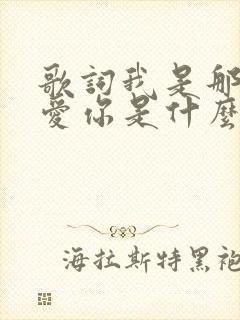 歌詞我是那
愛你是什麼
海拉斯特黑袍